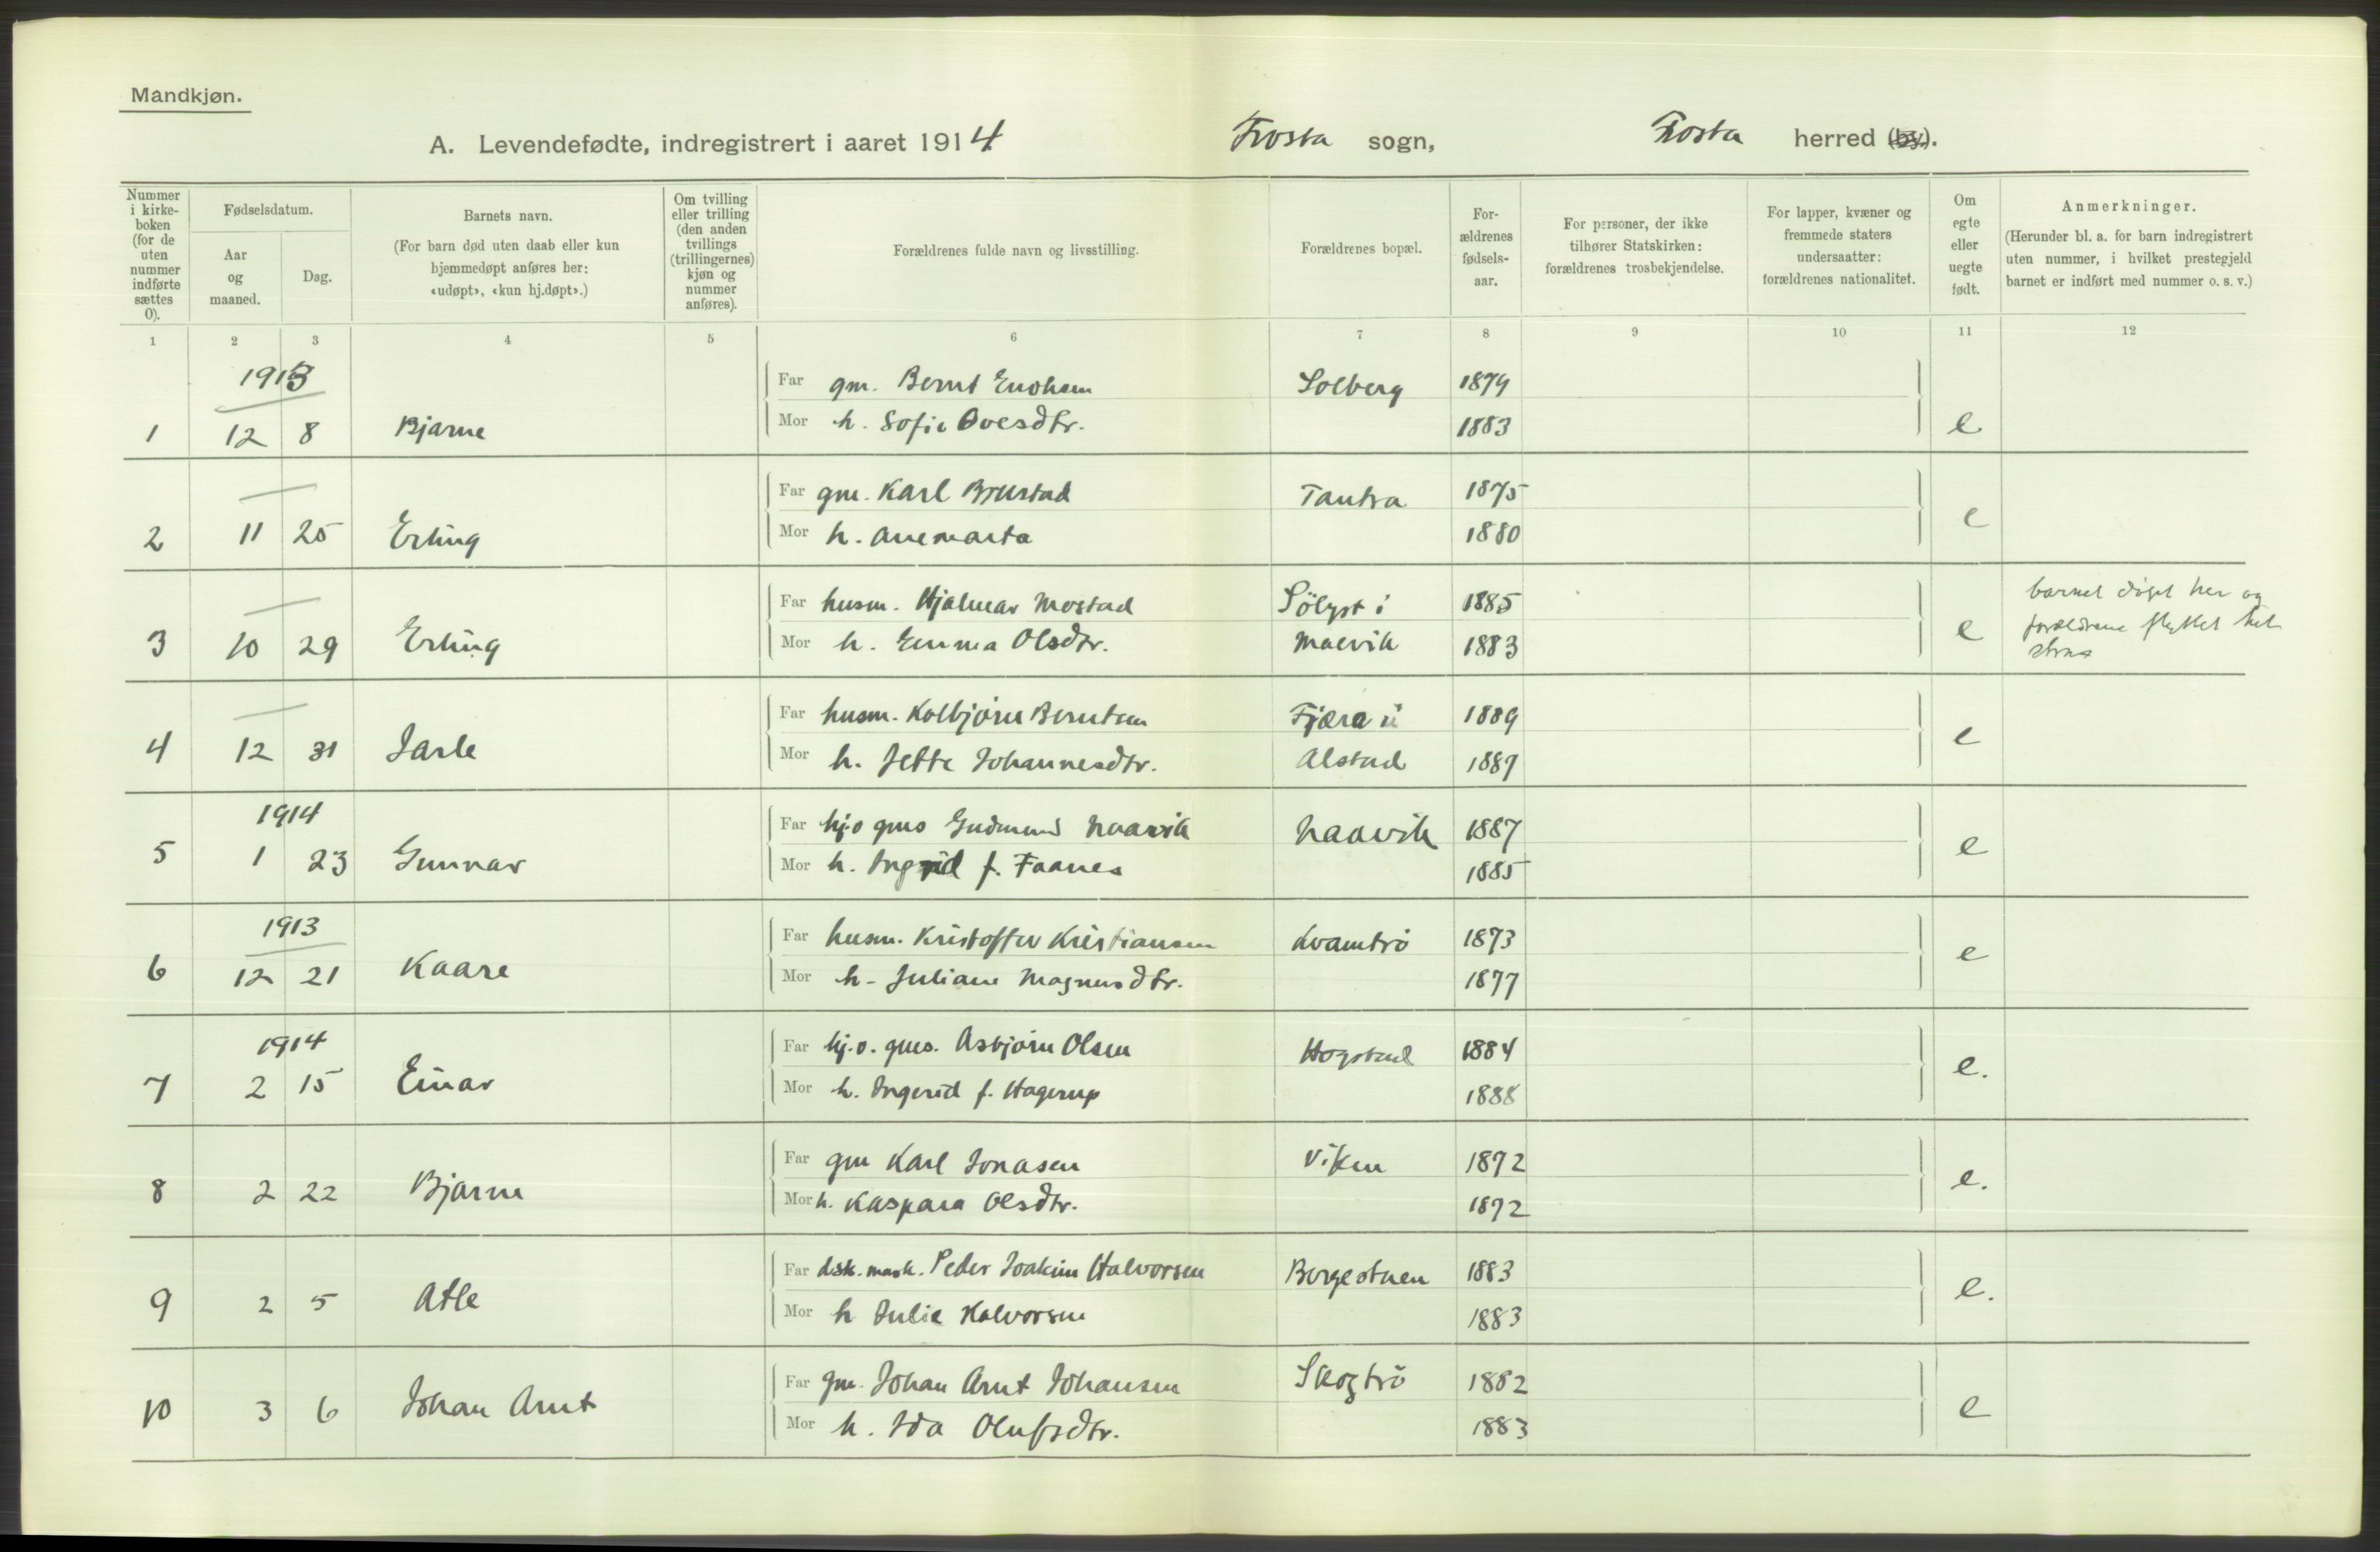 Mandkjøn.
A. Levendefødte, indregistrert i aaret 1914 Frosta sogn, Frosta herred (by).
Nummer i kirke-boken (for de uten nummer indførte sættes 0).
Fødselsdatum.
Aar og maaned.
Dag.
Barnets navn.
(For barn død uten daab eller kun hjemmedøpt anføres her: «udøpt», «kun hj.døpt».)
Om tvilling eller trilling (den anden tvillings (trillingernes) kjøn og nummer anføres).
Forældrenes fulde navn og livsstilling.
Forældrenes bopæl.
For-ældrenes fødsels-aar.
For personer, der ikke tilhører Statskirken: forældrenes trosbekjendelse.
For lapper, kvæner og fremmede staters undersaatter: forældrenes nationalitet.
Om egte eller uegte født.
Anmerkninger.
(Herunder bl. a. for barn indregistrert uten nummer, i hvilket prestegjeld barnet er indført med nummer o. s. v.)
1 2 3 4 5 6 7 8 9 10 11 12
1913
Far gm. Bernt Solberg 1879
1 12 8 Bjarne Mor h. Sofie Ovesdtr. 1883 e
Far gm. Karl Brustad Tautra 1875
2 11 25 Erling Mor h. Anemarta 1880 e
Far husm. Hjalmar Mostad Sölyst i 1885 barnet döpt her og
3 10 29 Erling Mor h. Emma Olsdtr. 1883 e forældrene flyttet
Far husm. Kolbjörn Berntsen Fjæra u 1889
4 12 31 Jarle Mor h. Jette Johannesdtr. Alstad 1889 e
1914
Far hj.o gms Gudmund Naavik Naavik 1887
5 1 23 Gunnar Mor h. Ingrid f. Faanes 1885 e
1913
Far husm. Kristoffer Kristiansen Kvamtrö 1873
6 12 21 Kaare Mor h. Juliane Magnusdtr. 1877 e
1914
Far hj.o. gms. Asbjörn Olsen Hogstad 1884
7 2 15 Einar Mor h. Ingerid f. Hagerup 1888 e.
Far gm Karl Jonasen Viken 1872
8 2 22 Bjarne Mor h. Kaspara Olsdtr. 1872 e.
Far Peder Joakim Halvorsen Borgestuen 1883
9 2 5 Atle Mor h Julie Halvorsen 1883 e.
Far gm. Johan Arnt Johansen Skogtrö 1882
10 3 6 Johan Arnt Mor h. Ida Olufsdtr. 1883 e